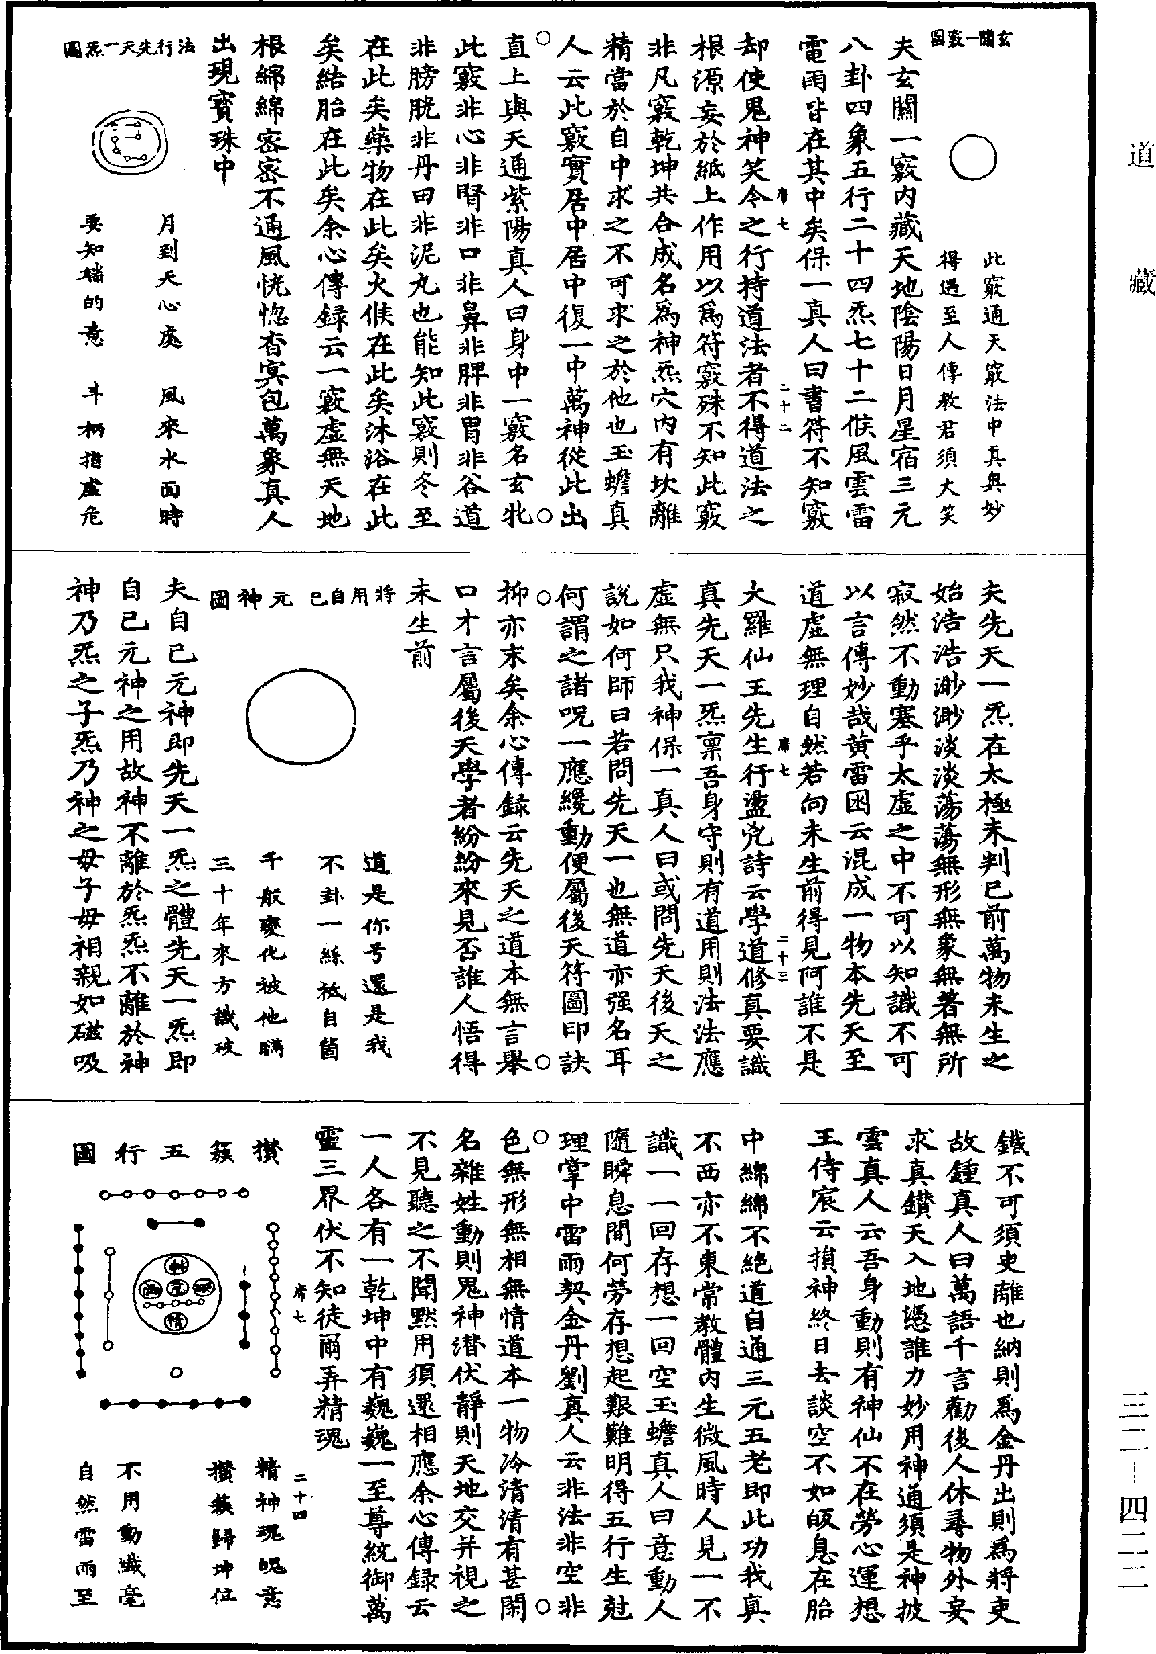 道藏
玄關一竅圖
此竅通天竅法中真與妙
得遇至人傳教君須大笑
夫玄關一竅內藏天地陰陽日月星宿三元
八卦四象五行二十四炁七十二候風雲雷
電雨皆在其中矣保一真人曰書符不知竅
席七
二十二
却使鬼神笑今之行持道法者不得道法之
根源妄於紙上作用以為符竅殊不知此竅
非凡竅乾坤共合成名為神炁穴內有坎離
精當於自中求之不可求之於他也玉蟾真
人云此竅實居中居中復一中萬神從此出
直上與天通紫陽真人曰身中一竅名玄牝
此竅非心非腎非口非鼻非脾非胃非谷道
非膀胱非丹田非泥丸也能知此竅則冬至
在此矣藥物在此矣火候在此矣沐浴在此
矣結胎在此矣余心傳錄云一竅虛無天地
根綿綿密密不通風恍惚杳冥包萬象真人
出現寶珠中
法行先天一炁圖
月到天心處　風來水面時
要知端的意　斗柄指虛危
夫先天一炁在太極未判已前萬物未生之
始浩浩渺渺淡淡蕩蕩無形無象無著無所
寂然不動塞乎太虛之中不可以知識不可
以言傳妙哉黃雷囦云混成一物本先天至
道虛無理自然若向未生前得見阿誰不是
席七
二十三
大羅仙王先生行盪兇詩云學道修真要識
真先天一炁稟吾身守則有道用則法法應
虛無只我神保一真人曰或問先天後天之
說如何師曰若問先天一也無道亦强名耳
何謂之諸呪一應纔動便屬後天符圖印訣
抑亦末矣余心傳錄云先天之道本無言舉
口才言屬後天學者紛紛來見否誰人悟得
未生前
將用自己元神圖
道是你兮還是我
不卦一絲祇自箇
千般變化被他瞞
三十年來方識破
夫自己元神即先天一炁之體先天一炁即
自己元神之用故神不離於炁炁不離於神
神乃炁之子炁乃神之母子母相親如磁吸
鐵不可須臾離也納則為金丹出則為將吏
故鍾真人曰萬語千言勸後人休尋物外妄
求真鑽天入地憑誰力妙用神通須是神披
雲真人云吾身動則有神仙不在勞心運想
王侍宸云損神終日去談空不如皈息在胎
中綿綿不絕道自通三元五老即此功我真
不西亦不東常教體內生微風時人見一不
識一一回存想一回空玉蟾真人曰意動人
隨瞬息間何勞存想起艱難明得五行生尅
理掌中雷雨契金丹劉真人云非法非空非
色無形無相無情道本一物冷清清有甚閑
名雜姓動則鬼神潛伏靜則天地交并視之
不見聽之不聞默用須還相應余心傳錄云
一人各有一乾坤中有巍巍一至尊統御萬
靈三界伏不知徒爾弄精魂
席七
二十四
攢簇五行圖
精神魂魄意
攢簇歸坤位
不用動纖毫
自然雷雨至
三二—四二二